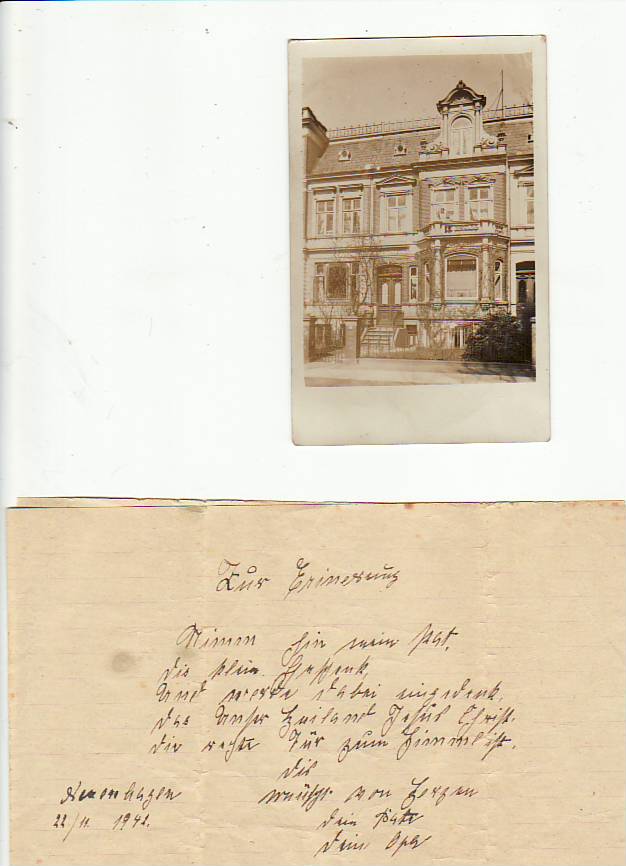 Zur Erinerung
Nimm hin mein Pat,
die klein Geschenk,
Und werde dabei eingedenk,
das Unser Heiland Jesus Christ.
die rechte Tür zum Himmel ist.
dis
wünscht von Herzen
dein Pate
dein Opa
22/11. 1942.